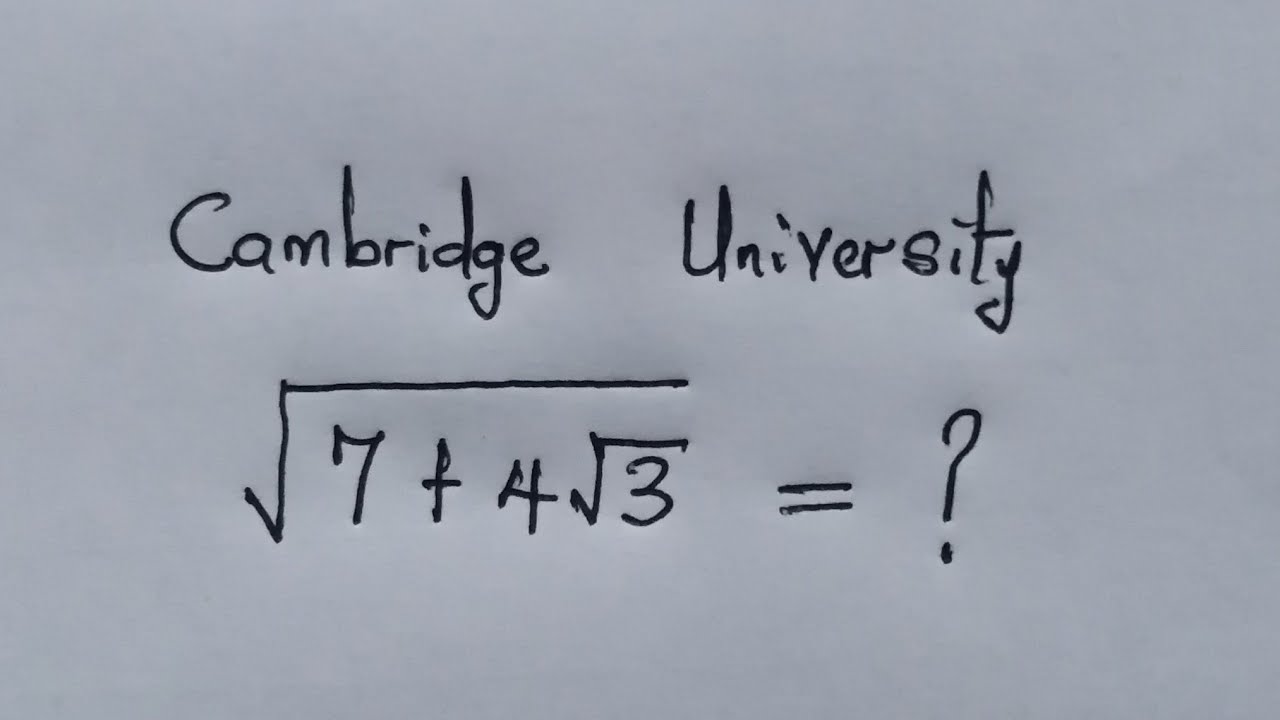 Cambridge University
√(7 + 4√3) = ?